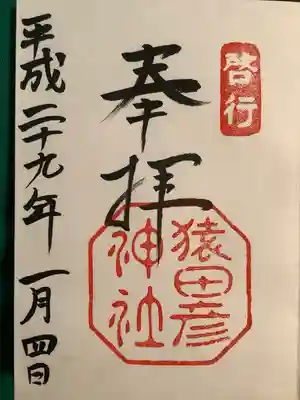 啓行
奉拝
猿田彦
神社
平成二十九年一月四日